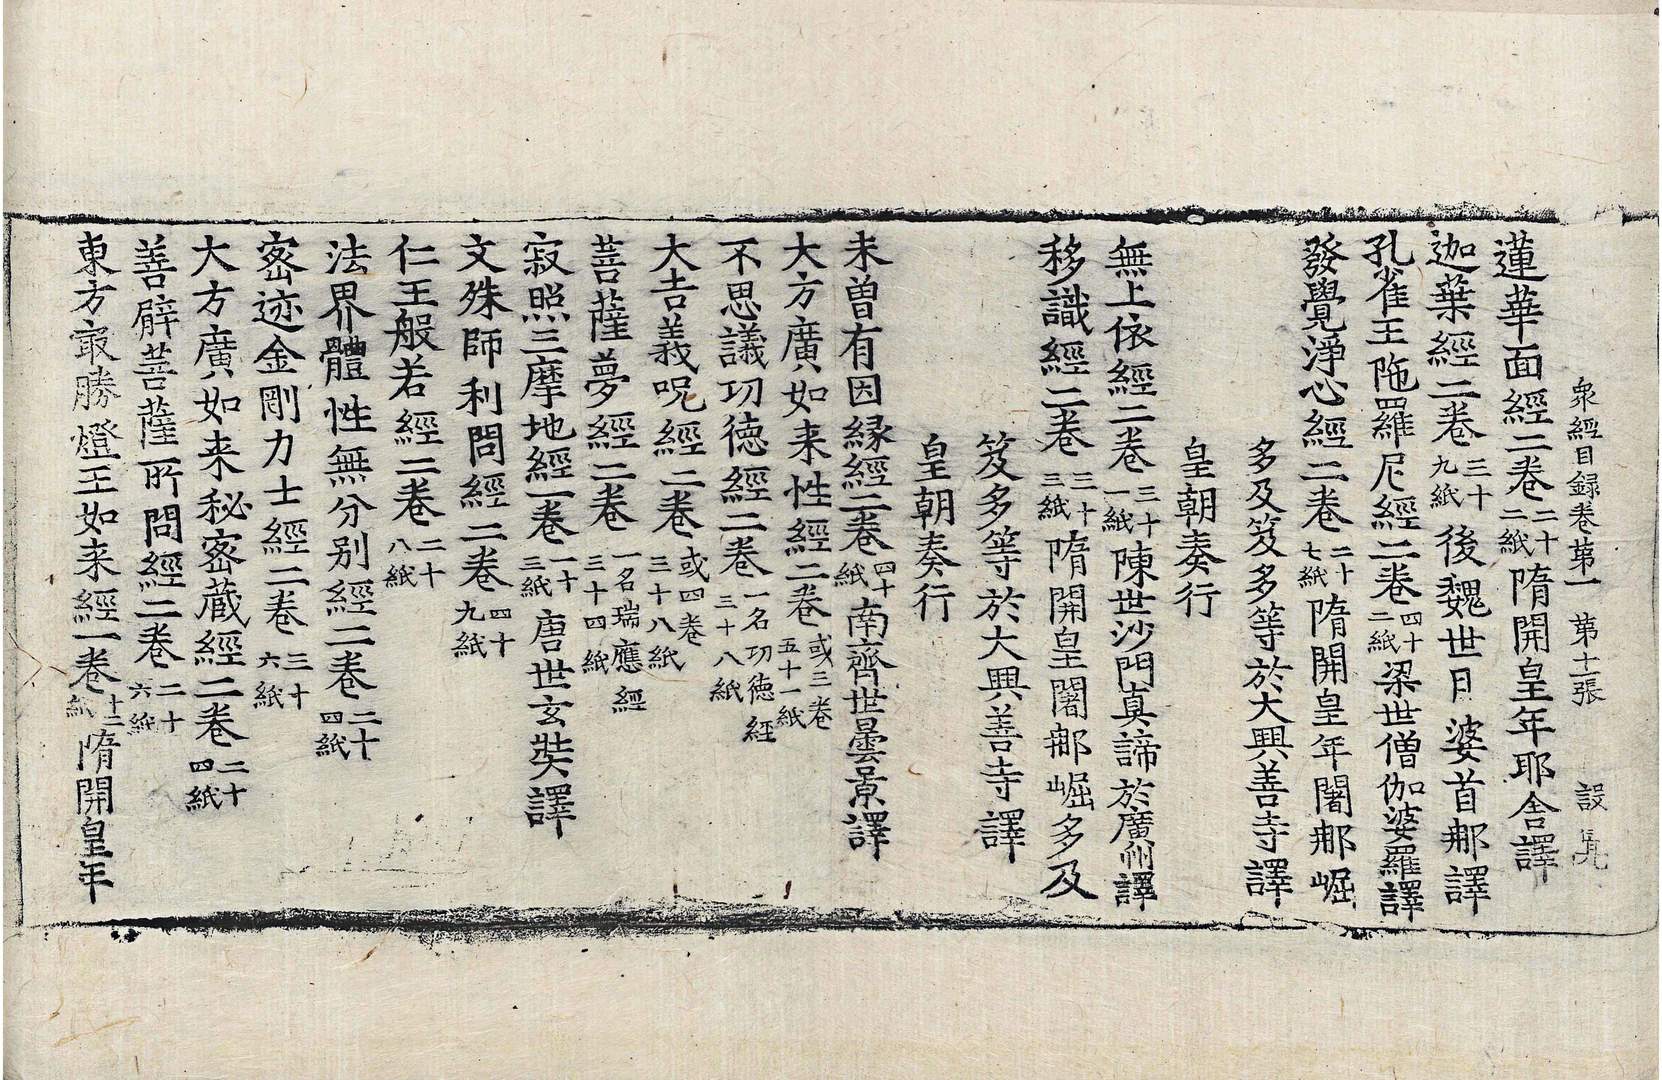 衆經目録卷第一　第十一張　設
蓮華面經二卷二十二紙隋開皇年耶舍譯
迦葉經二卷三十九紙後魏世月婆首那譯
孔雀王陁羅尼經二卷四十二紙梁世僧伽婆羅譯
發覺淨心經二卷二十七紙隋開皇年闍那崛
多及笈多等於大興善寺譯
皇朝奏行
無上依經二卷三十一紙陳世沙門真諦於廣州譯
移識經二卷三十三紙隋開皇闍那崛多及
笈多等於大興善寺譯
皇朝奏行
未曾有因縁經二卷四十紙南齊世曇景譯
大方廣如来性經二卷或三卷五十一紙
不思議功德經二卷一名功德經三十八紙
大吉義呪經二卷或四卷三十八紙
菩薩夢經二卷一名瑞應經三十四紙
寂照三摩地經一卷一十三紙唐世玄奘譯
文殊師利問經二卷四十九紙
仁王般若經二卷二十八紙
法界體性無分別經二卷二十四紙
密迹金剛力士經二卷三十六紙
大方廣如来秘密藏經二卷二十四紙
善臂菩薩所問經二卷二十六紙
東方最勝燈王如来經一卷十二紙隋開皇年